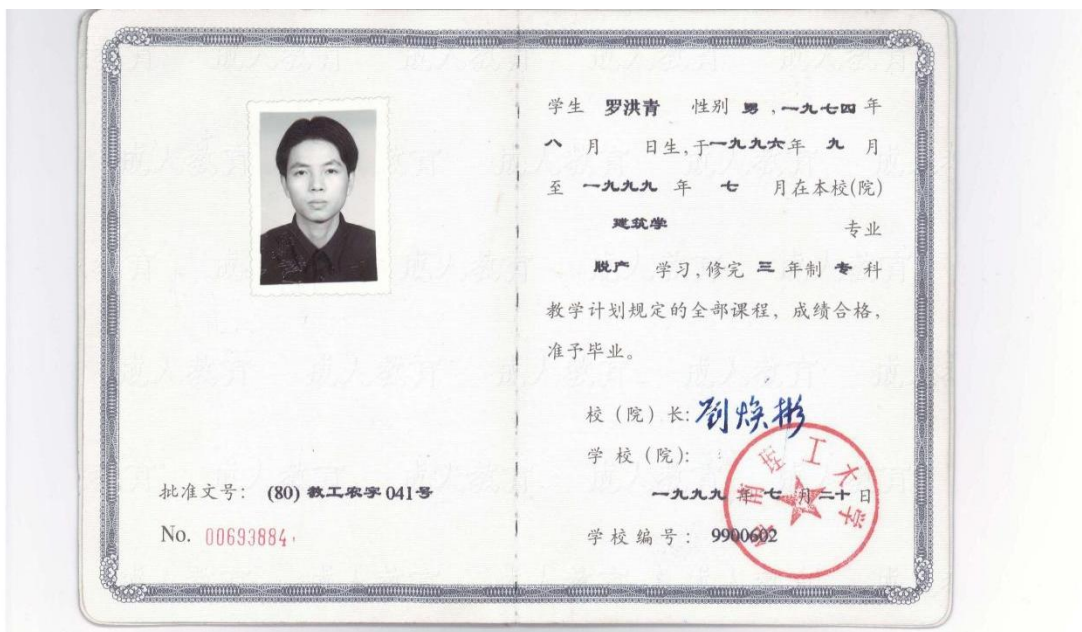 批准文号: (80) 教工农字 041号
No. 00693884
学生 罗洪青 性别 男 ,一九七四 年
八 月 日生,于一九九六年 九 月
至 一九九九 年 七 月在本校(院)
建筑学 专业
脱产 学习,修完 三 年制 专 科
教学计划规定的全部课程, 成绩合格,
准予毕业。
校 (院) 长: 刘焕彬
学 校 (院):
华南理工大学
一九九九 年 七 月二十日
学校编号: 9900602
成人教育